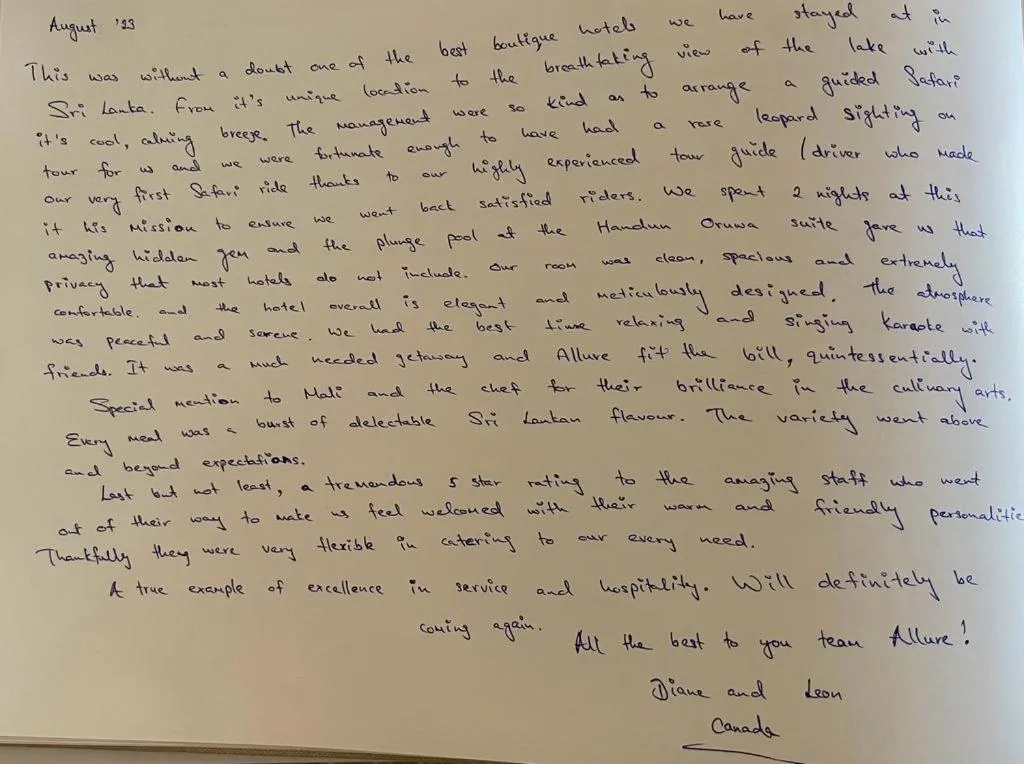 August '23
This was without a doubt one of the best boutique hotels we have stayed at in
Sri Lanka. From it's unique location to the breathtaking view of the lake with
it's cool, calming breeze. The management were so kind as to arrange a guided Safari
tour for us and we were fortunate enough to have had a rare leopard sighting on
our very first Safari ride thanks to our highly experienced tour guide / driver who made
it his mission to ensure we went back satisfied riders. We spent 2 nights at this
amazing hidden gem and the plunge pool at the Handun Oruwa suite gave us that
privacy that most hotels do not include. Our room was clean, spacious and extremely
comfortable. and the hotel overall is elegant and meticulously designed. The atmosphere
was peaceful and serene. We had the best time relaxing and singing Karaoke with
friends. It was a much needed getaway and Allure fit the bill, quintessentially.
Special mention to Mali and the chef for their brilliance in the culinary arts.
Every meal was a burst of delectable Sri Lankan flavour. The variety went above
and beyond expectations.
Last but not least, a tremendous 5 star rating to the amazing staff who went
out of their way to make us feel welcomed with their warm and friendly personalitie
Thankfully they were very flexible in catering to our every need.
A true example of excellence in service and hospitality. Will definitely be
coming again.
All the best to you team Allure!
Diane and Leon
Canada